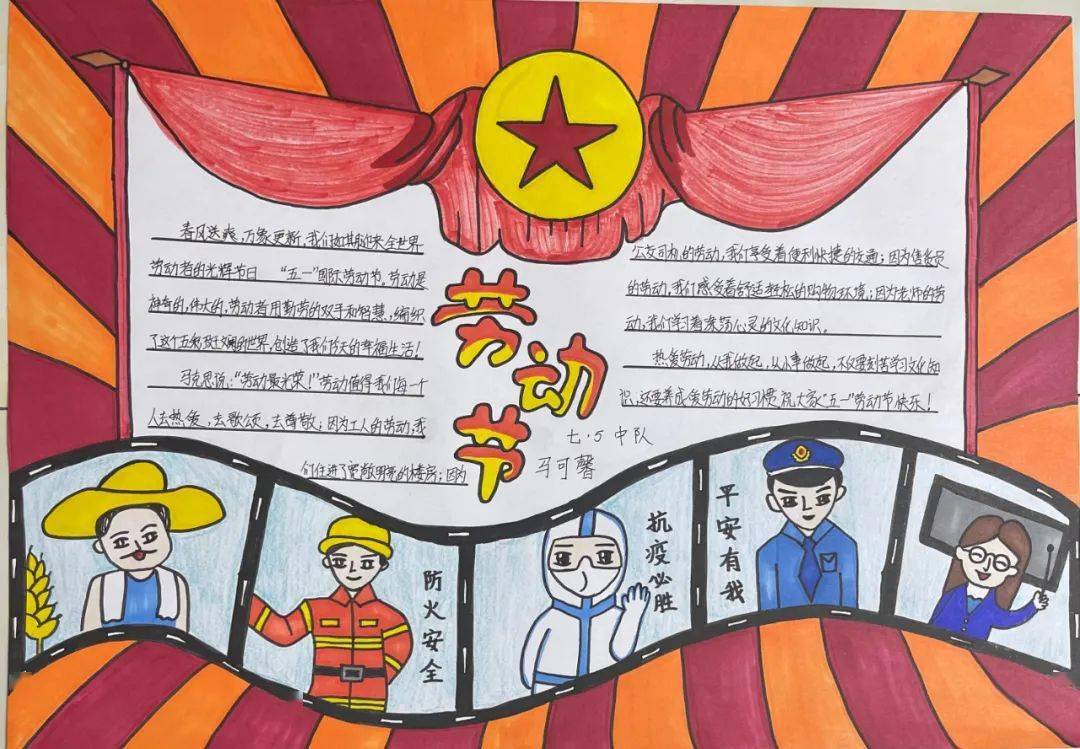 春风送爽,万象更新,我们即将迎来全世界
劳动者的光辉节日 “五一”国际劳动节。劳动是
神奇的,伟大的,劳动者用勤劳的双手和智慧,编织
了这个五彩斑斓的世界,创造了我们今天的幸福生活!
马克思说:“劳动最光荣!”劳动值得我们每一个
人去热爱,去歌颂,去尊敬;因为工人的劳动,我
们住进了宽敞明亮的楼房;因为
公交司机的劳动,我们享受着便利快捷的交通;因为售货员
的劳动,我们感受着舒适轻松的购物环境;因为老师的劳
动,我们学习着涤荡心灵的文化知识。
热爱劳动,从我做起,从小事做起,不仅要刻苦学习文化知
识,还要养成爱劳动的好习惯祝大家“五一”劳动节快乐!
劳动节
七.5中队
马可馨
防火安全
抗疫必胜
平安有我